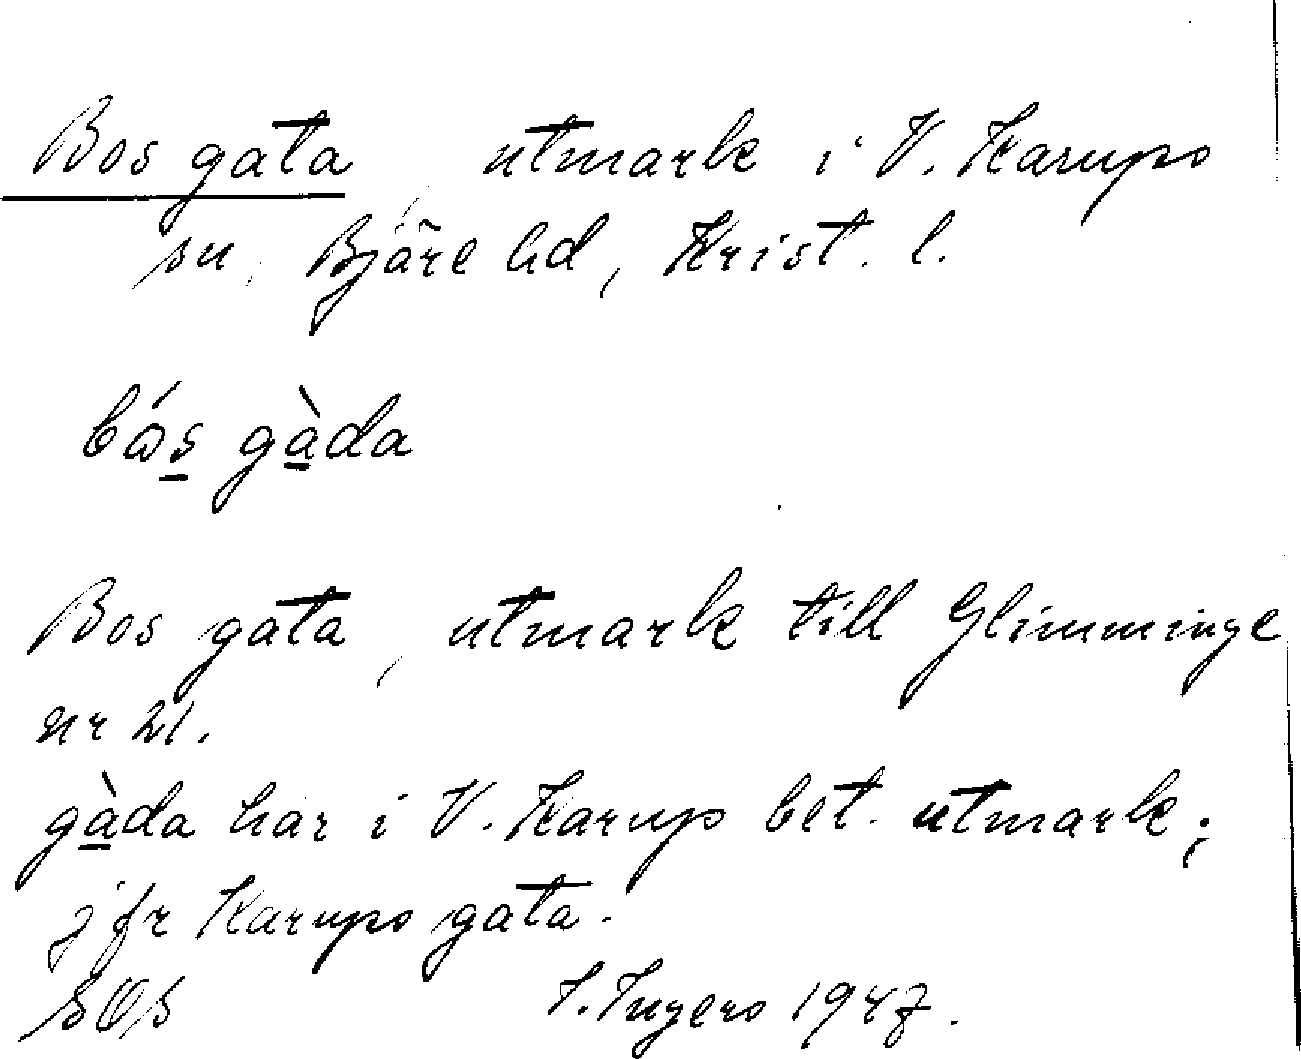 Bos gata, utmark i V. Karups
sn, Bjäre hd, Krist. l.
bós gàda
Bos gata, utmark till Glimminge
nr 21.
gàda har i V. Karup bet. utmark;
jfr Karups gata.
I. Ingers 1947.